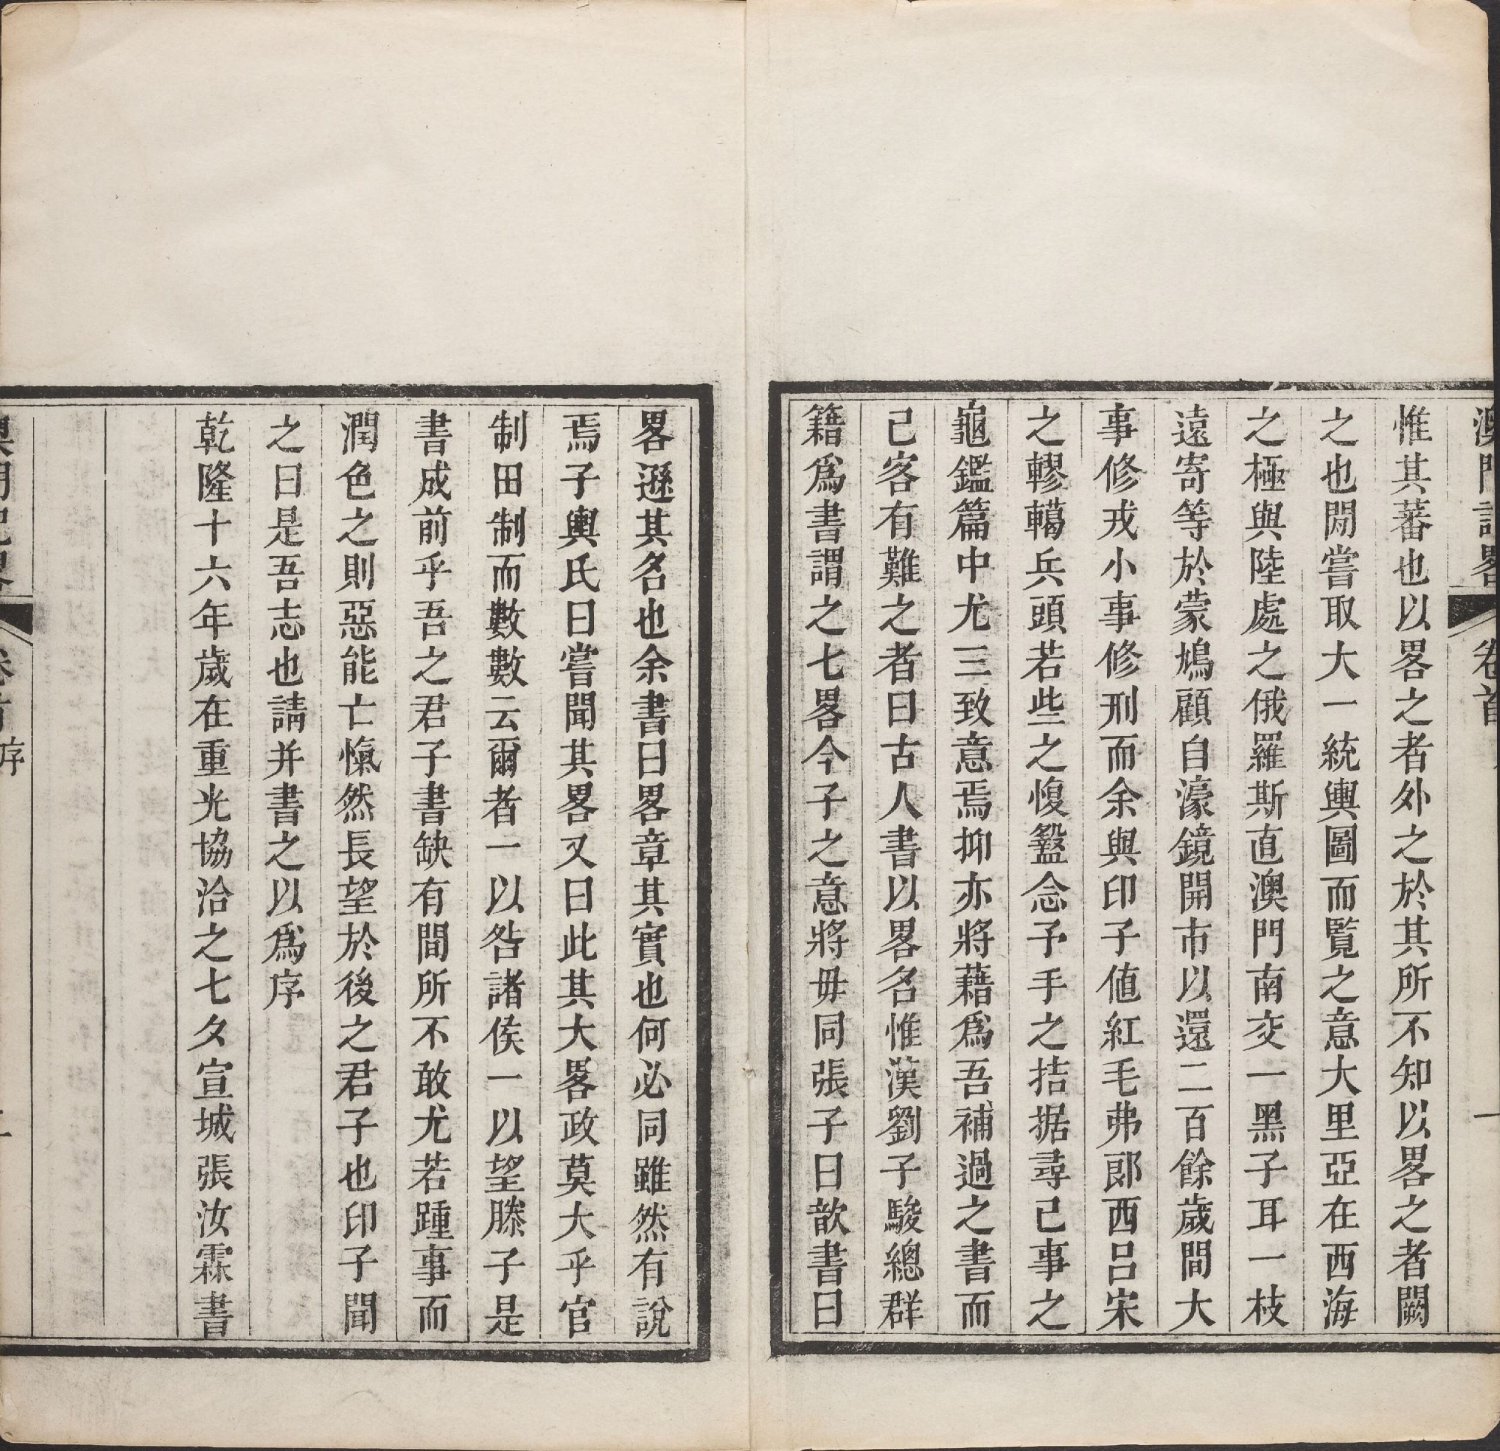 澳門記畧 卷首
惟其蕃也以畧之者外之於其所不知以畧之者闕
之也間嘗取大一統輿圖而覽之意大里亞在西海
之極與陸處之俄羅斯直澳門南交一黑子耳一枝
遠寄等於蒙鳩顧自濠鏡開市以還二百餘歲間大
事修戎小事修刑而余與印子値紅毛弗郎西呂宋
之轇轕兵頭若些之愎盭念予手之拮据尋己事之
龜鑑篇中尤三致意焉抑亦將藉爲吾補過之書而
己客有難之者曰古人書以畧名惟漢劉子駿總群
籍爲書謂之七畧今子之意將毋同張子曰歆書曰
畧遜其名也余書曰畧章其實也何必同雖然有說
焉子輿氏曰嘗聞其畧又曰此其大畧政莫大乎官
制田制而數數云爾者一以咎諸侯一以望滕子是
書成前乎吾之君子書缺有間所不敢尤若踵事而
潤色之則惡能亡愾然長望於後之君子也印子聞
之曰是吾志也請并書之以爲序
乾隆十六年歲在重光協洽之七夕宣城張汝霖書
澳門記畧 卷首 序 二